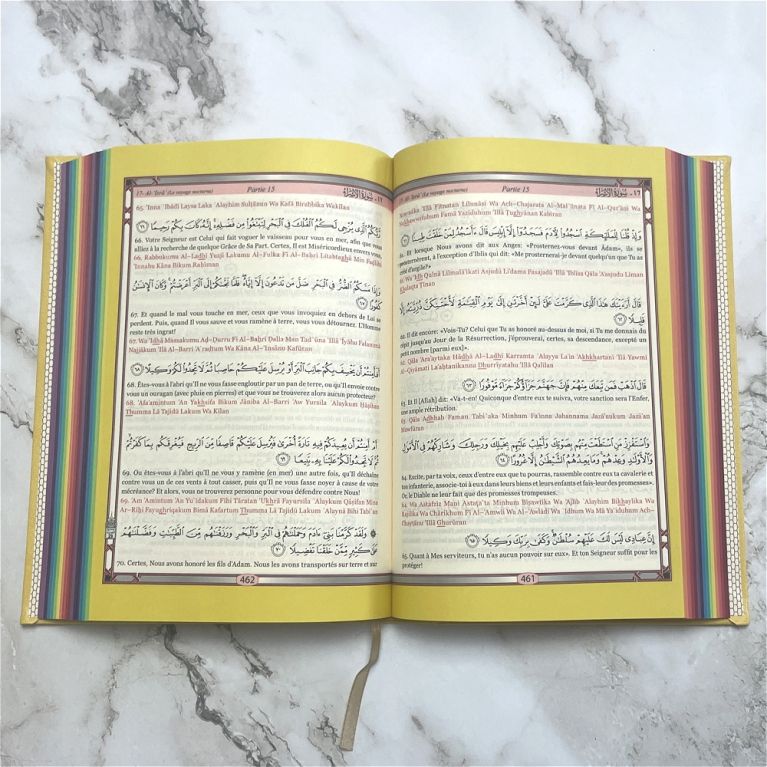 17- Al-'Isrā' (Le voyage nocturne) Partie 15 ١٧ - سُورَةُ الإِسْرَاءِ
'Araynāka 'Illā Fitnatan Lilnnāsi Wa Ach-Chajarata Al-Mal`ūnata Fī Al-Qur'āni Wa
Nukhawwifuhum Famā Yazīduhum 'Illā Ţughyānan Kabīran
وَإِذْ قُلْنَا لِلْمَلَٰٓئِكَةِ ٱسْجُدُوا۟ لِءَادَمَ فَسَجَدُوٓا۟ إِلَّآ إِبْلِيسَ قَالَ ءَأَسْجُدُ لِمَنْ خَلَقْتَ طِينًا ٦١
61. Et lorsque Nous avons dit aux Anges: «Prosternez-vous devant Ādam», ils se
prosternèrent, à l'exception d'Iblis qui dit: «Me prosternerai-je devant quelqu'un que Tu as
créé d'argile?»
61. Wa 'Idh Qulnā Lilmalā'ikati Asjudū Li'dama Fasajadū 'Illā 'Iblīsa Qāla 'A'asjudu Liman
Khalaqta Ţīnan
قَالَ أَرَءَيْتَكَ هَٰذَا ٱلَّذِى كَرَّمْتَ عَلَىَّ لَئِنْ أَخَّرْتَنِ إِلَىٰ يَوْمِ ٱلْقِيَٰمَةِ لَأَحْتَنِكَنَّ ذُرِّيَّتَهُۥٓ إِلَّا
قَلِيلًا ٦٢
62. Il dit encore: «Vois-Tu? Celui que Tu as honoré au-dessus de moi, si Tu me donnais du
répit jusqu'au Jour de la Résurrection, j'éprouverai, certes, sa descendance, excepté un
petit nombre [parmi eux]».
62. Qāla 'Ara'aytaka Hādhā Al-Ladhī Karramta `Alayya La'in 'Akhkhartani 'Ilá Yawmi
Al-Qiyāmati La'aĥtanikanna Dhurrīyatahu 'Illā Qalīlan
قَالَ ٱذْهَبْ فَمَن تَبِعَكَ مِنْهُمْ فَإِنَّ جَهَنَّمَ جَزَآؤُكُمْ جَزَآءً مَّوْفُورًا ٦٣
63. Et Il [Allah] dit: «Va-t-en! Quiconque d'entre eux te suivra, votre sanction sera l'Enfer,
une ample rétribution.
63. Qāla Adhhab Faman Tabi`aka Minhum Fa'inna Jahannama Jazā'uukum Jazā'an
Mawfūran
وَٱسْتَفْزِزْ مَنِ ٱسْتَطَعْتَ مِنْهُم بِصَوْتِكَ وَأَجْلِبْ عَلَيْهِم بِخَيْلِكَ وَرَجِلِكَ وَشَارِكْهُمْ فِى ٱلْأَمْوَٰلِ
وَٱلْأَوْلَٰدِ وَعِدْهُمْ وَمَا يَعِدُهُمُ ٱلشَّيْطَٰنُ إِلَّا غُرُورًا ٦٤
64. Excite, par ta voix, ceux d'entre eux que tu pourras, rassemble contre eux ta cavalerie et
ton infanterie, associe-toi à eux dans leurs biens et leurs enfants et fais-leur des promesses».
Or, le Diable ne leur fait que des promesses trompeuses.
64. Wa Astafziz Mani Astaţa`ta Minhum Bişawtika Wa 'Ajlib `Alayhim Bikhaylika Wa
Rajilika Wa Chārik'hum Fī Al-'Amwli Wa Al-'Awlādi Wa `Idhum Wa Mā Ya`iduhum Ach-
Chayţānu 'Illā Ghurūran
إِنَّ عِبَادِى لَيْسَ لَكَ عَلَيْهِمْ سُلْطَٰنٌ وَكَفَىٰ بِرَبِّكَ وَكِيلًا ٦٥
65. Quant à Mes serviteurs, tu n'as aucun pouvoir sur eux». Et ton Seigneur suffit pour les
protéger!
461
17- Al-'Isrā' (Le voyage nocturne) Partie 15 ١٧ - سُورَةُ الإِسْرَاءِ
65. 'Inna `Ibādī Laysa Laka `Alayhim Sulţānun Wa Kafá Birabbika Wakīlan
رَّبُّكُمُ ٱلَّذِى يُزْجِى لَكُمُ ٱلْفُلْكَ فِى ٱلْبَحْرِ لِتَبْتَغُوا۟ مِن فَضْلِهِۦٓ إِنَّهُۥ كَانَ بِكُمْ رَحِيمًا ٦٦
66. Votre Seigneur est Celui qui fait voguer le vaisseau pour vous en mer, afin que vous
alliez à la recherche de quelque Grâce de Sa Part. Certes, Il est Miséricordieux envers
vous.
66. Rabbukumu Al-Ladhī Yuzjī Lakumu Al-Fulka Fī Al-Baĥri Litabtaghū Min Fađlihi
'Innahu Kāna Bikum Raĥīman
وَإِذَا مَسَّكُمُ ٱلضُّرُّ فِى ٱلْبَحْرِ ضَلَّ مَن تَدْعُونَ إِلَّآ إِيَّاهُ فَلَمَّا نَجَّىٰكُمْ إِلَى ٱلْبَرِّ أَعْرَضْتُمْ وَكَانَ ٱلْإِنسَٰنُ
كَفُورًا ٦٧
67. Et quand le mal vous touche en mer, ceux que vous invoquiez en dehors de Lui se
perdent. Puis, quand Il vous sauve et vous ramène à terre, vous vous détournez. L'homme
reste très ingrat!
67. Wa 'Idhā Massakumu Ađ-Đurru Fī Al-Baĥri Đalla Man Tad`ūna 'Illā 'Īyāhu Falammā
Najjākum 'Ilá Al-Barri 'A`rađtum Wa Kāna Al-'Insānu Kafūran
أَفَأَمِنتُمْ أَن يَخْسِفَ بِكُمْ جَانِبَ ٱلْبَرِّ أَوْ يُرْسِلَ عَلَيْكُمْ حَاصِبًا ثُمَّ لَا تَجِدُوا۟ لَكُمْ وَكِيلًا ٦٨
68. Êtes-vous à l'abri qu'Il ne vous fasse engloutir par un pan de terre, ou qu'Il envoie contre
vous un ouragan (avec pluie en pierres) et que vous ne trouverez alors aucun protecteur?
68. 'Afa'amintum 'An Yakhsifa Bikum Jāniba Al-Barri 'Aw Yursila `Alaykum Ĥāşiban
Thumma Lā Tajidū Lakum Wa Kīlan
أَمْ أَمِنتُمْ أَن يُعِيدَكُمْ فِيهِ تَارَةً أُخْرَىٰ فَيُرْسِلَ عَلَيْكُمْ قَاصِفًا مِّنَ ٱلرِّيحِ فَيُغْرِقَكُم بِمَا كَفَرْتُمْ
ثُمَّ لَا تَجِدُوا۟ لَكُمْ عَلَيْنَا بِهِۦ تَبِيعًا ٦٩
69. Ou êtes-vous à l'abri qu'Il ne vous y ramène (en mer) une autre fois, qu'Il déchaîne
contre vous un de ces vents à tout casser, puis qu'Il ne vous fasse noyer à cause de votre
mécréance? Et alors, vous ne trouverez personne pour vous défendre contre Nous!
69. 'Am 'Amintum 'An Yu`īdakum Fīhi Tāratan 'Ukhrá Fayursila `Alaykum Qāşifan Mina
Ar-Rīĥi Fayughriqakum Bimā Kafartum Thumma Lā Tajidū Lakum `Alaynā Bihi Tabī`an
وَلَقَدْ كَرَّمْنَا بَنِىٓ ءَادَمَ وَحَمَلْنَٰهُمْ فِى ٱلْبَرِّ وَٱلْبَحْرِ وَرَزَقْنَٰهُم مِّنَ ٱلطَّيِّبَٰتِ وَفَضَّلْنَٰهُمْ
عَلَىٰ كَثِيرٍ مِّمَّنْ خَلَقْنَا تَفْضِيلًا ٧٠
70. Certes, Nous avons honoré les fils d'Adam. Nous les avons transportés sur terre et sur
462